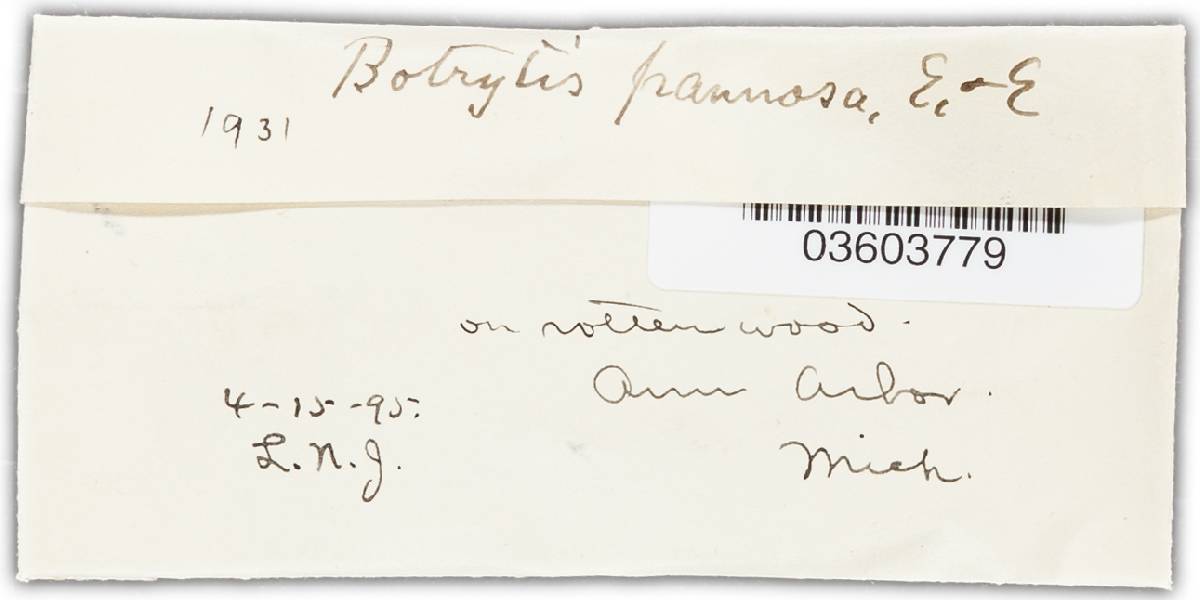 Botrytis pannosa, E. & E
1931
03603779
on rotten wood.
Ann Arbor.
4-15-95.
L.N.J.
Mich.